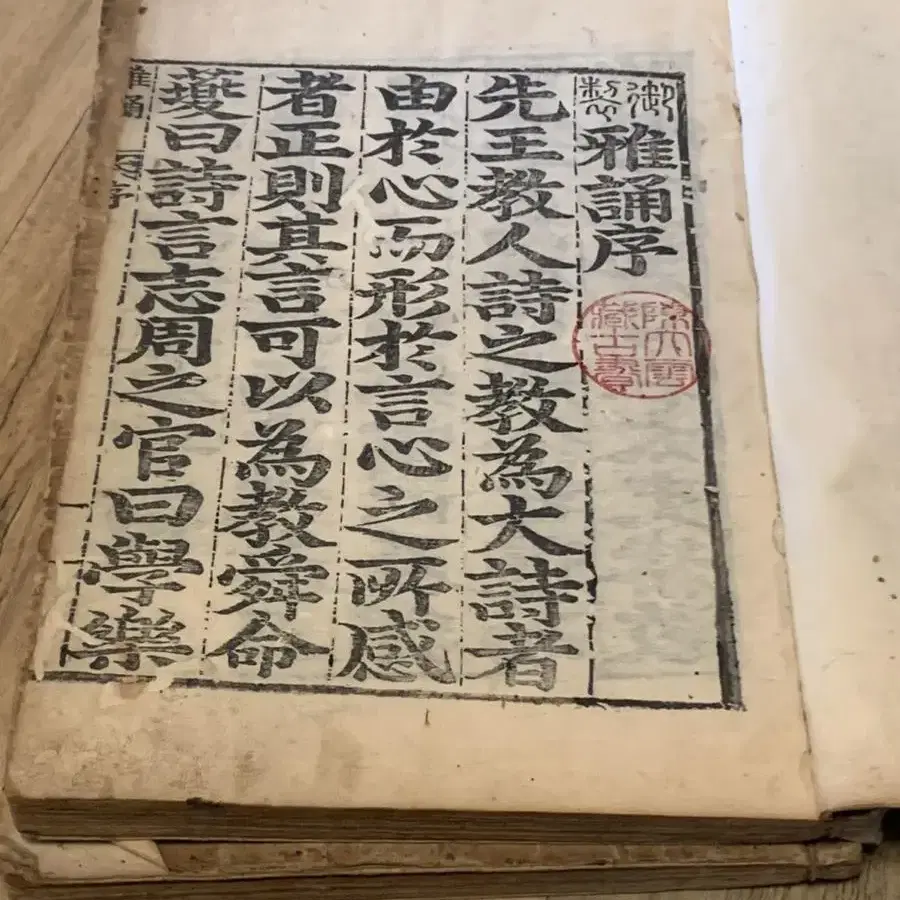 御製雅誦序
先王教人詩之教為大詩者
由於心而形於言心之所感
者正則其言可以為教舜命
夔曰詩言志周之官曰學樂
雅誦 序
藏古書